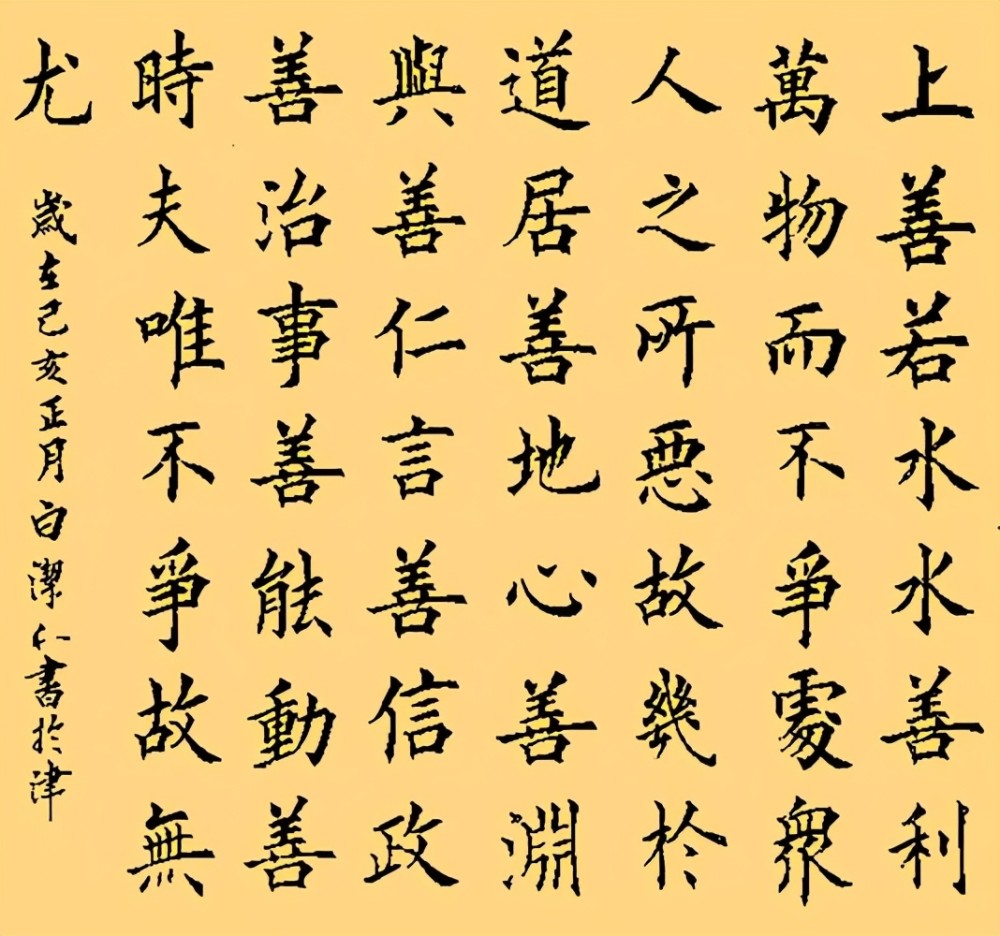 上善若水水善利
萬物而不爭處衆
人之所惡故幾於
道居善地心善淵
與善仁言善信政
善治事善能動善
時夫唯不爭故無
尤
歲在己亥正月白潔仁書於津